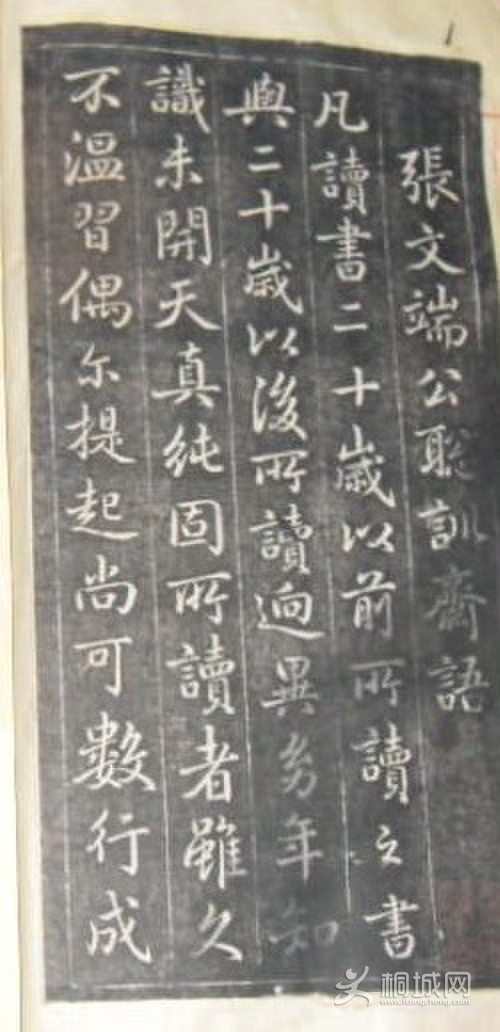 張文端公聡訓齋語
凡讀書二十歲以前所讀之書
與二十歲以後所讀迥異㓜年知
識未開天真純固所讀者雖久
不溫習偶尔提起尚可數行成
1
桐城网
www.itongcheng.com